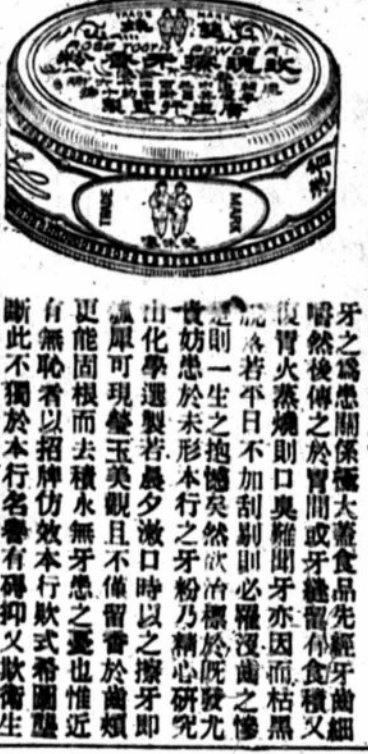 TRADE MARK
ROSE TOOTH POWDER
玫瑰擦牙香粉
TRADE MARK
牙之為患關係極大蓋食品先經牙齒細
嚼然後傳之於胃間或牙縫留有食積又
復胃火蒸燒則口臭難聞牙亦因而枯黑
脫落若平日不加刮剔則必罹沒齒之慘
是則一生之抱憾矣然欲治標於既發尤
貴妨患於未形本行之牙粉乃精心研究
由化學選製若晨夕漱口時以之擦牙即
瓠犀可現瑩玉美觀且不僅留香於齒頰
更能固根而去積永無牙患之憂也惟近
有無恥者以招牌仿效本行欵式希圖壟
斷此不獨於本行名譽有碍抑又欺衛生